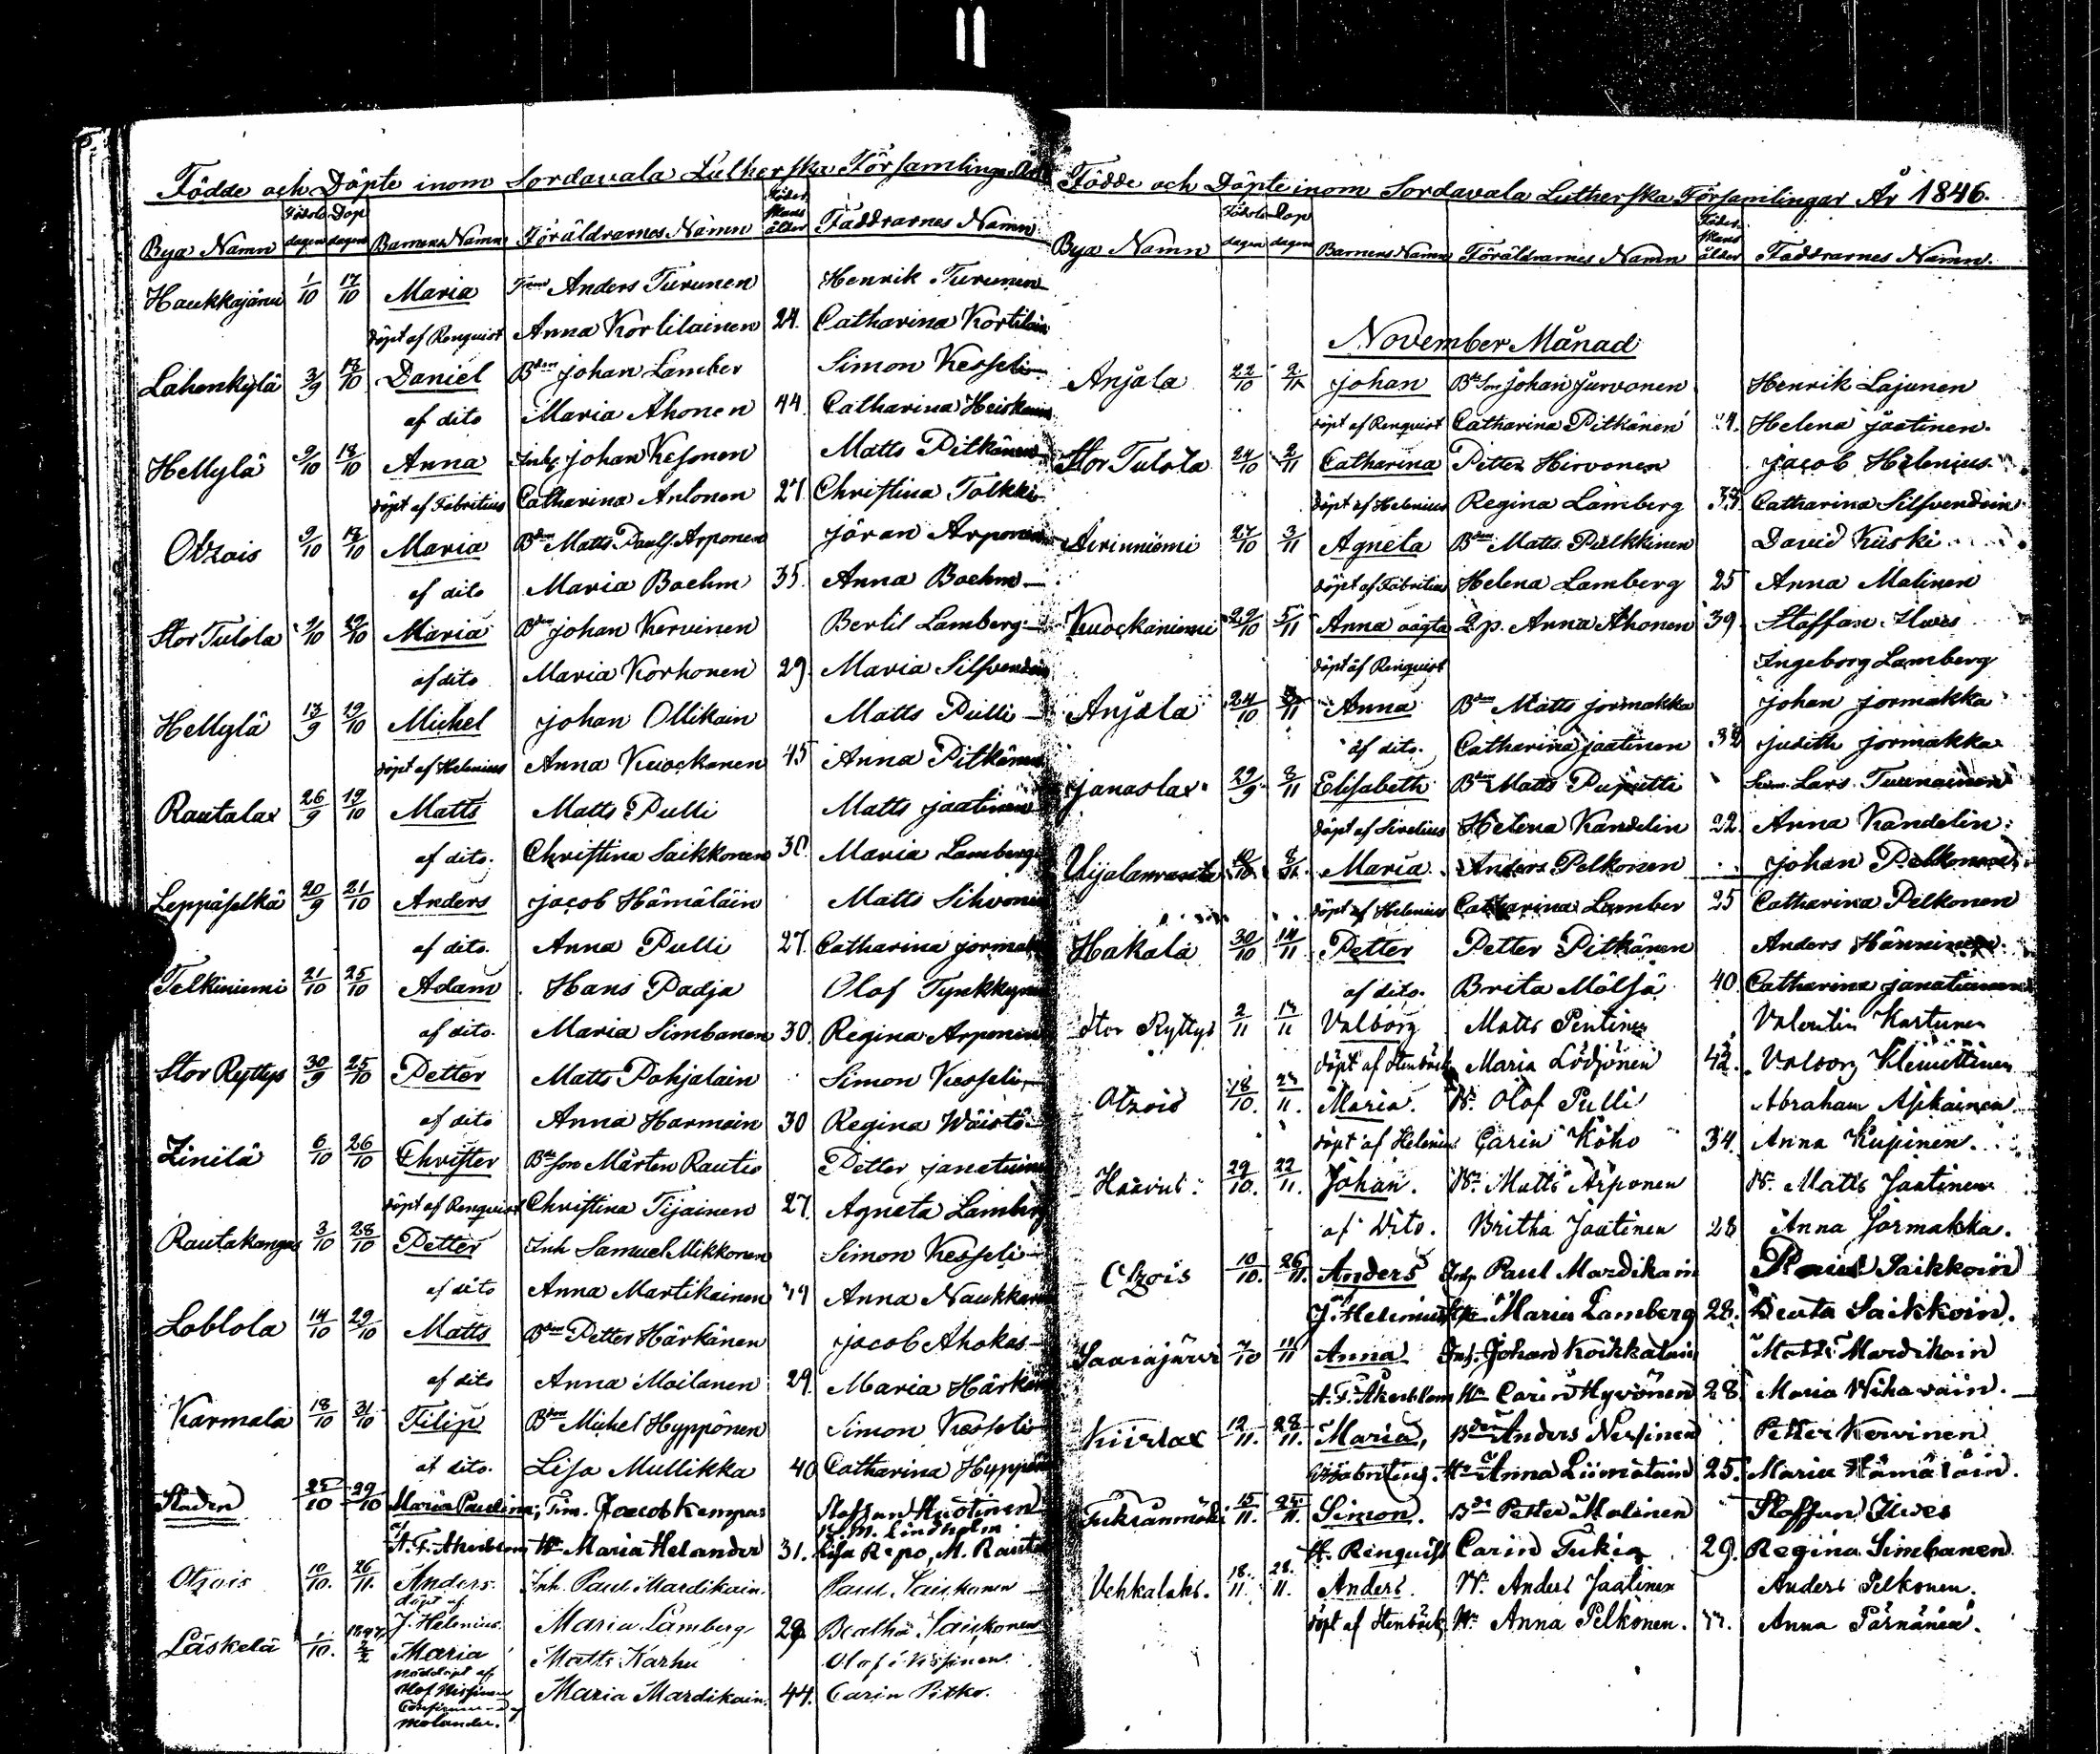 Födde och Döpte inom Sordavala Lutherska Församlingar
Bya Namn Födslo dagen Dop dagen Barnens Namn Föräldrarnes Namn Föder skans ålder Faddrarnes Namn
Haukkajärvi 1/10 17/10 Maria Anders Turunen Henrik Turunen
döpt af Renquist Anna Kortilainen 24. Catharina Kortilain
Lahenkylä 3/9 17/10 Daniel Bden Johan Lamber Simon Kesseli
af dito Maria Ahonen 44 Catharina Heiskanin
Hellylä 9/10 18/10 Anna Inh. Johan Kesonen Matts Pitkänen
döpt af Fabritius Catharina Antonen 27 Christina Tolkki
Otzois 9/10 17/10 Maria Bden Matts Paulss. Arponen Jöran Arponen
af dito Maria Boehm 35. Anna Boehm
Stor Tulola 9/10 19/10 Maria Bden Johan Kervinen Bertil Lamberg
af dito Maria Korhonen 29. Maria Silfvendoin
Hellylä 13/9 19/10 Michel Johan Ollikain Matts Pulli
döpt af Helenius Anna Kuockanen 45 Anna Pitkänen
Rautalax 26/9 19/10 Matts Matts Pulli Matts Jaatinen
af dito. Christina Saikkonen 30. Maria Lamberg
Leppäselkä 20/9 21/10 Anders Jacob Hämäläin Matts Sihvonen
af dito. Anna Pulli 27. Catharina Jormakka
Telkiniemi 21/10 25/10 Adam Hans Padja Olof Tynkkynen
af dito. Maria Simbanen 30. Regina Arponen
Stor Ryttys 30/9 25/10 Petter Matts Pohjalain Simon Kesseli
af dito Anna Harmoin 30 Regina Wäistö
Zinilä 6/10 26/10 Christer Bde Son Mårten Rautio Petter Janatuinen
döpt af Renquist Christina Tijainen 27. Agneta Lamberg
Rautakangas 3/10 28/10 Petter Inh Samuel Mikkonen Simon Kesseli
af dito Anna Martikainen 49 Anna Naukkarin
Loblola 14/10 29/10 Matts Bden Petter Härkänen Jacob Ahokas
af dito Anna Moilanen 29. Maria Härkän
Karmala 18/10 31/10 Filip Bden Michel Hyppönen Simon Kesseli
af dito. Lisa Mullikka 40 Catharina Hyppönen
Staden 25/10 29/10 Maria Paulina, Tim. Jacob Kempas Staffan Huotinen
K. M. Lindholm
A. F. Akerblom Hu Maria Helander 31. Lisa Repo, M. Rautio
Otzois 10/10. 26/11. Anders. Inh. Paul Mardikain. Paul Saikonen
döpt af
J. Helenius. Maria Lamberg 28. Beatha Saikonen
Läskelä 1/10. 1847 2/2 Maria Matts Karhu Olof Nissinen
nöddöpt af
Olof Nissinen Maria Mardikain. 44. Carin Pitko.
Molander.
Födde och Döpte inom Sordavala Lutherska Församlingar År 1846.
Bya Namn Födslo dagen Dop dagen Barnens Namn Föräldrarnes Namn Föder skans ålder Faddrarnes Namn.
November Månad
Anjala 22/10 2/11 Johan Bde Son Johan Jurvonen Henrik Lajunen
döpt af Renquist Catharina Pitkänen Helena Jaatinen.
Stor Tulola 24/10 2/11 Catharina Petter Hirvonen Jacob Helenius.
döpt af Helenius Regina Lamberg 33. Catharina Silfvendoin
Airinniemi 27/10 3/11 Agneta Bden Matts Pulkkinen David Kiiski
döpt af Fabritius Helena Lamberg 25 Anna Malinen
Kuockaniemi 29/10 5/11 Anna oägta Q.p. Anna Ahonen 39 Staffan Ilves
döpt af Renquist Ingeborg Lamberg
Anjala 24/10 8/11 Anna Bden Matts Jormakka Johan Jormakka
af dito. Catharina Jaatinen Judith Jormakka
Janaslax 29/9 8/11 Elisabeth Bden Matts Puputti Lars Tuunainen
döpt af Sirelius Helena Kandelin 22. Anna Kandelin
Uijalanranta 8/11 Maria Anders Pelkonen Johan Pelkonen
döpt af Helenius Catharina Lamber 25 Catharina Pelkonen
Hakala 30/10 14/11 Petter Petter Pitkänen Anders Hänninen
af dito. Brita Mölsä 40. Catharina Janatuinen
Stor Ryttys 2/11 Valborg Matts Pentinen Valentin Kartunen
döpt af Stenbäck Maria Lödjönen 42. Valborg Klemettinen
Otzois 18/10. 11. Maria. B. Olof Pulli Abraham Asikainen.
döpt af Helenius Carin Köho 34. Anna Kupinen.
Haavus. 29/10. 22/11. Johan. B. Matts Arponen B. Matts Jaatinen
af dito. Britha Jaatinen 28 Anna Jormakka.
Otzois 10/10. 26/11. Anders Inh Paul Mardikain Paul Saikkoin
af J. Helenius Maria Lamberg 28. Beata Saikkoin.
Saariajärvi 7/10 11/11 Anna Inh. Johan Koikkalain Matts Mardikain
A. F. Åkerblom Hu Carin Hyvönen 28. Maria Wihavain.
Kiirlax 12/11. 28/11. Maria, Bden Anders Nissinen Petter Kervinen
af Fabritius. Hu Anna Liimatain 25. Maria Hämäläin.
Tukianmäki 15/11. 11. Simon. Bde Petter Malinen Staffan Ilves
H. Renquist Carin Tukia 29. Regina Simbanen
Vehkalaks. 18./11. 28./11. Anders. B. Anders Jaatinen Anders Pelkonen.
döpt af Stenbäck Hu Anna Pelkonen. Anna Pärnänen.